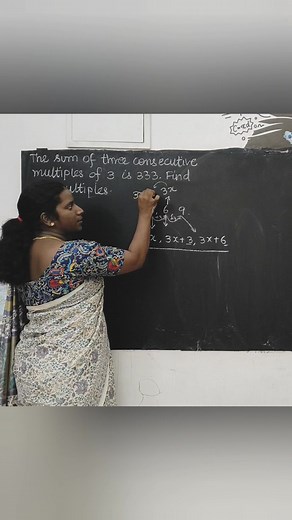 The sum of three consecutive
multiples of 3 is 333. Find
multiples. 3x
6 9
x, 3x+3, 3x+6